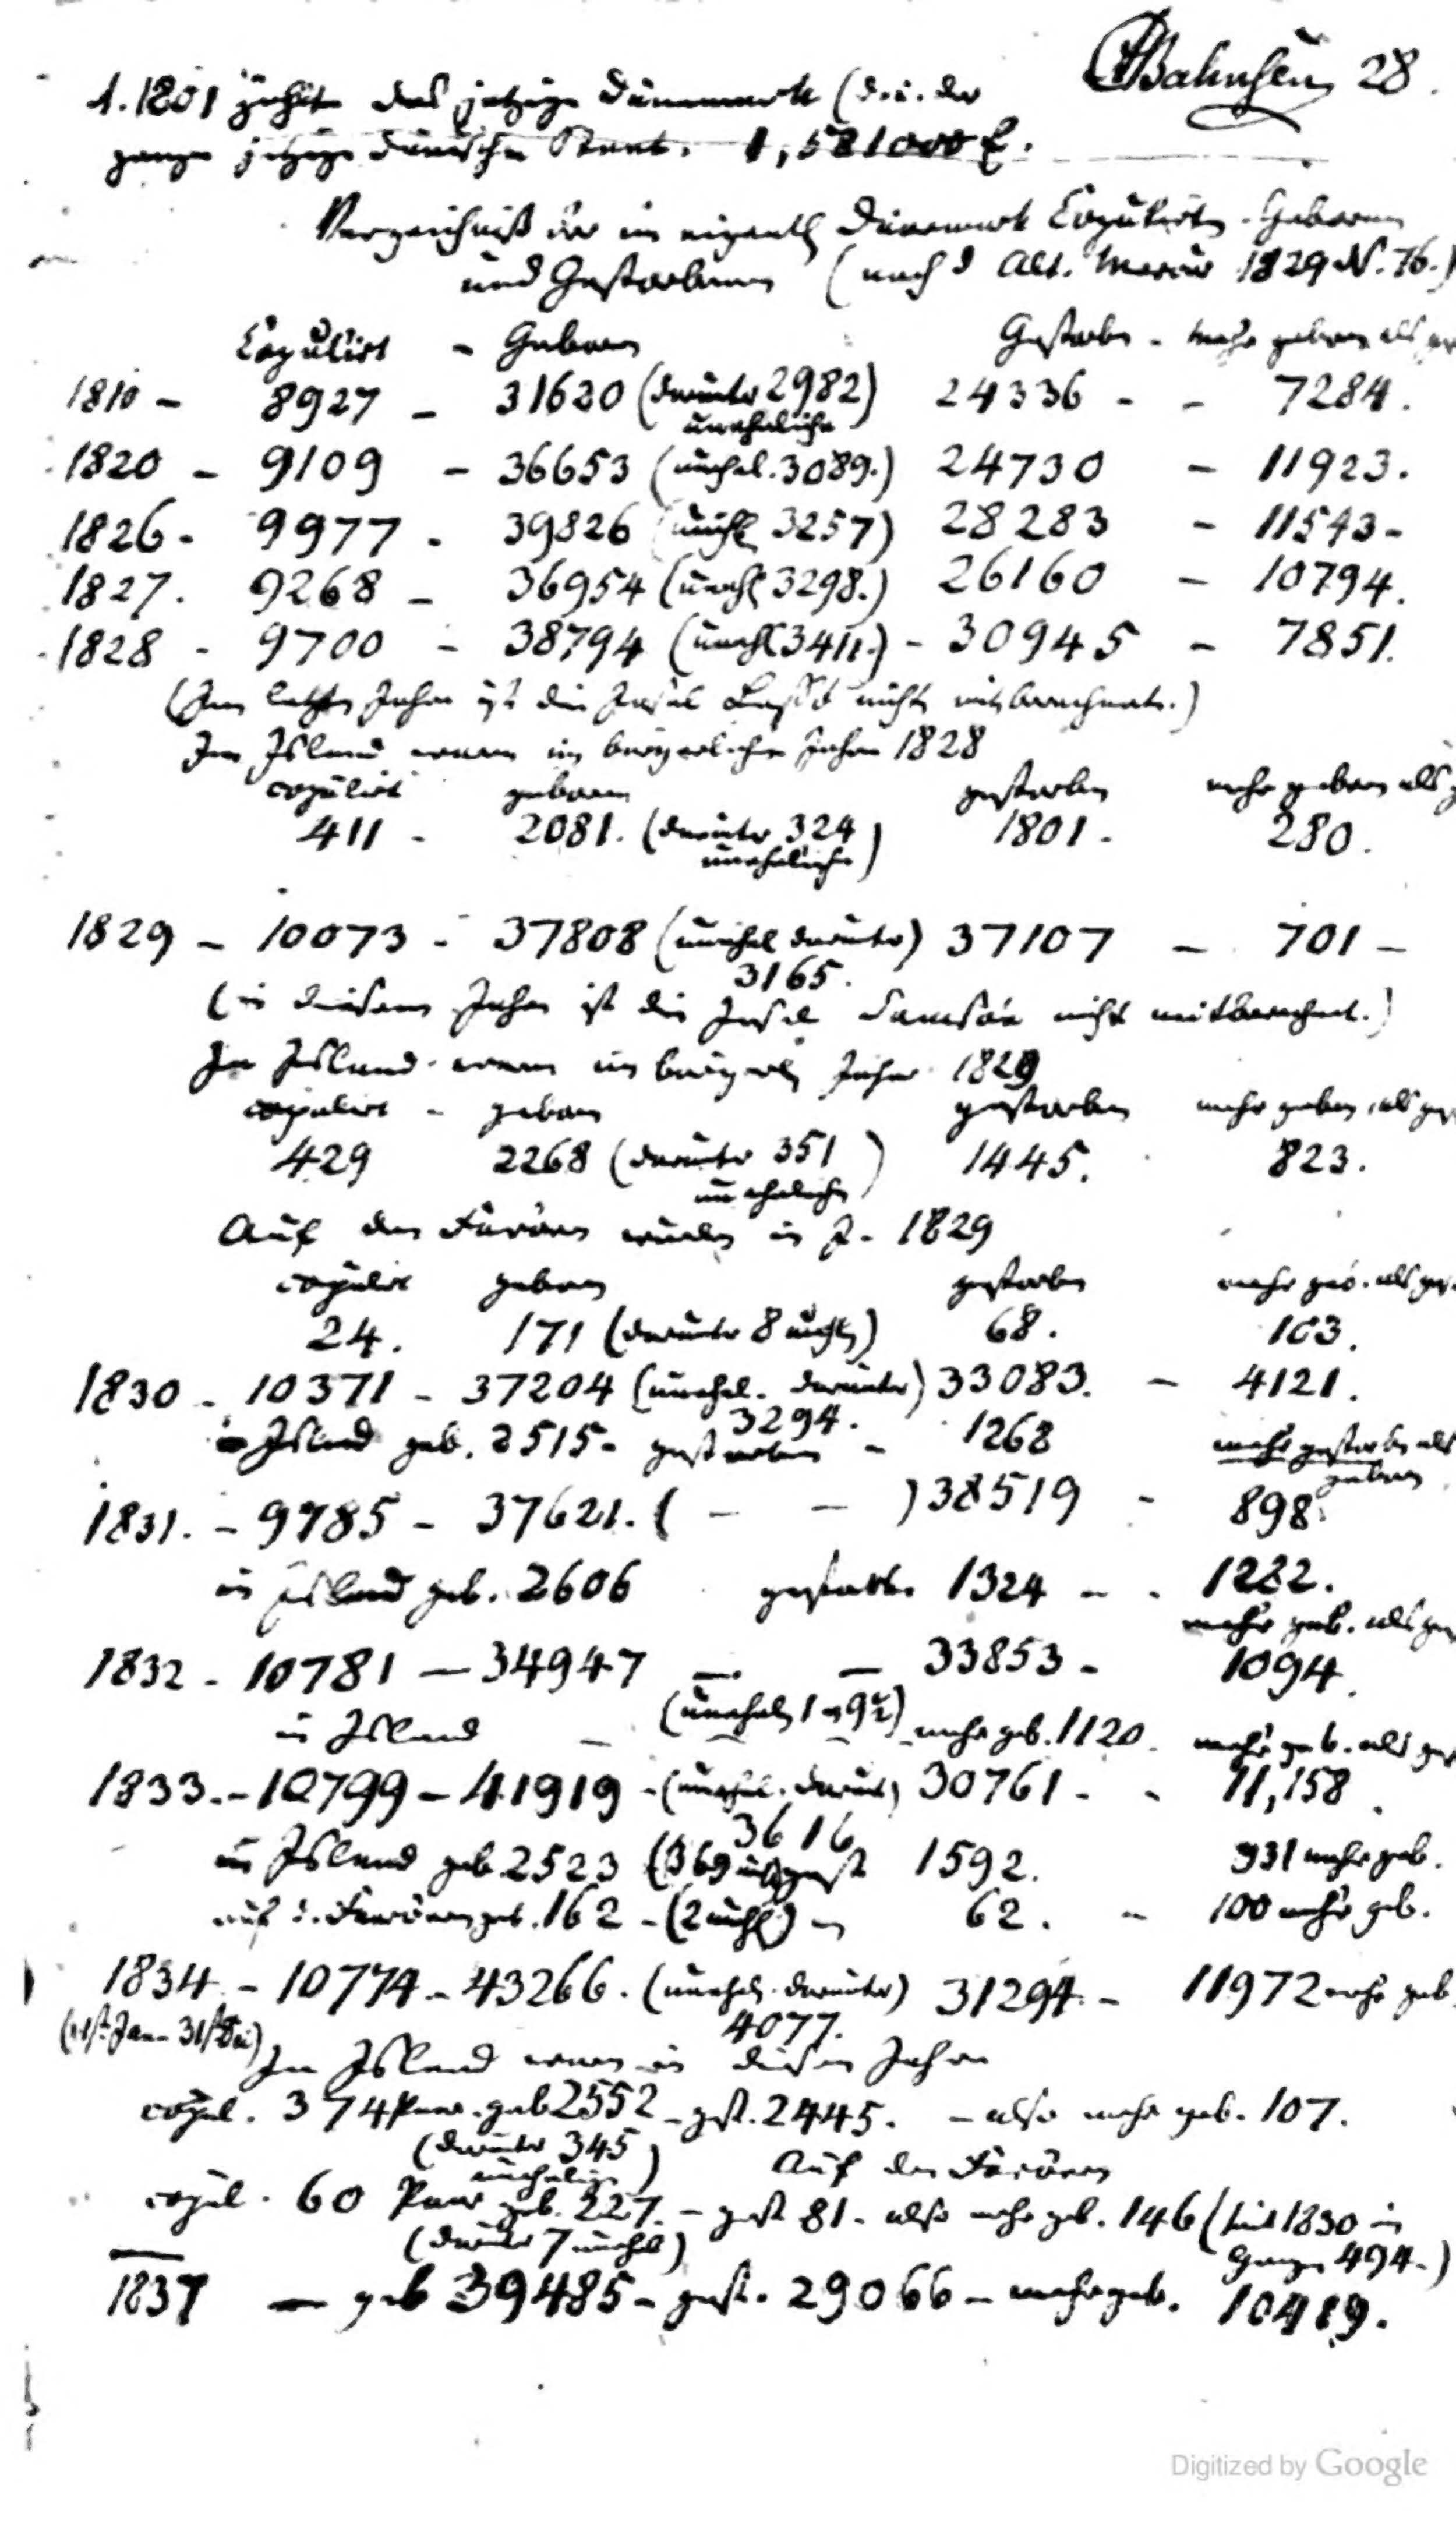 Bahnsen 28.
A. 1801 zählte das jetzige Dänemark (d. i. der
ganze jetzige dänische Staat. 1,581000 E.
Verzeichniß der im eigentl Dänemark Copulirten - Geborenen
und Gestorbenen (nach d Alt. Mercur 1829 N. 76.)
Copulirt - Geboren Gestorben - mehr geboren als ge
1810 - 8927 - 31620 (darunter 2982) 24336 - - 7284.
uneheliche
1820 - 9109 - 36653 (unehel. 3089.) 24730 - 11923.
1826 - 9977 - 39826 (unehl 3257) 28283 - 11543 -
1827. 9268 - 36954 (unehl 3298.) 26160 - 10794.
1828 - 9700 - 38794 (unehl 3411.) - 30945 - 7851.
(Im letzten Jahre ist die Insel nicht mitberechnet.)
In Island waren im bürgerlichen Jahre 1828
copulirt geboren gestorben mehr geboren als g
411 - 2081. (darunter 324 1801. 280.
uneheliche)
1829 - 10073 - 37808 (unehel darunter) 37107 - 701 -
3165.
(in diesem Jahre ist die Insel Samsöe nicht mitberechnet.)
In Island waren im bürgerl Jahre 1829
copulirt - geboren gestorben mehr geboren als ges
429 2268 (darunter 351 1445. 823.
uneheliche)
Auf den Faröern wurden in J. 1829
copulirt geboren gestorben mehr geb. als ges
24. 171 (darunter 8 unehl) 68. 103.
1830 - 10371 - 37204 (unehel. darunter) 33083. - 4121.
3294.
in Island geb. 2515 - gestorben - 1268 mehr gestorben als
geboren
1831. - 9785 - 37621. ( - - ) 38519 - 898.
in Island geb. 2606 gestorben 1324 - - 1282.
mehr geb. als ges
1832 - 10781 - 34947 - - 33853 - 1094.
in Island - (unehel) mehr geb. 1120. mehr geb. als ges
1833. - 10799 - 41919 - (unehel. darunt) 30761 - - 11,158.
3616
in Island geb. 2523 (369 gest 1592. 931 mehr geb.
auf d. Faröern geb. 162 - (2 unehl) - 62. - 100 mehr geb.
1834 - 10774 - 43266. (unehel. darunter) 31294. - 11972 mehr geb.
4077.
(1st Jan - 31st Dec) In Island waren in diesem Jahre
copul. 374 Paar. geb 2552 - gest. 2445. - also mehr geb. 107.
(darunter 345
uneheliche) Auf den Faröern
copul. 60 Paar geb. 227. - gest 81 - also mehr geb. 146 (seit 1830 im
(darunter 7 unehel) Ganzen 494.)
1837 - geb 39485 - gest. 29066 - mehr geb. 10419.
Digitized by Google